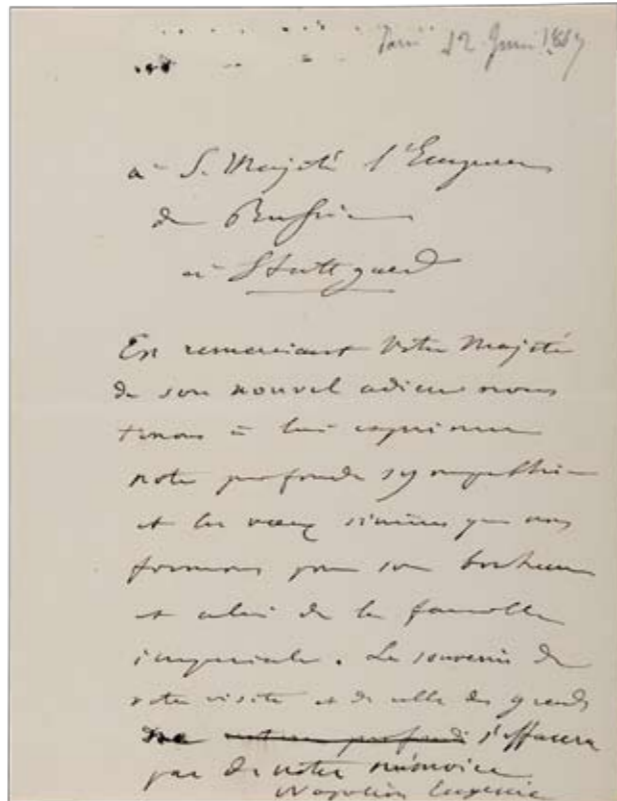 Paris 12 Juin 1867
à S. Majesté l'Empereur
de Russie
à Stuttgard
En remerciant Votre Majesté
de son nouvel adieu nous
tenons à lui exprimer
notre profonde sympathie
et les vœux sincères que nous
formons pour son bonheur
et celui de la famille
impériale. Le souvenir de
votre visite et de celle des grands
ducs notre profond s'effacera
pas de notre mémoire
Napoléon Eugénie